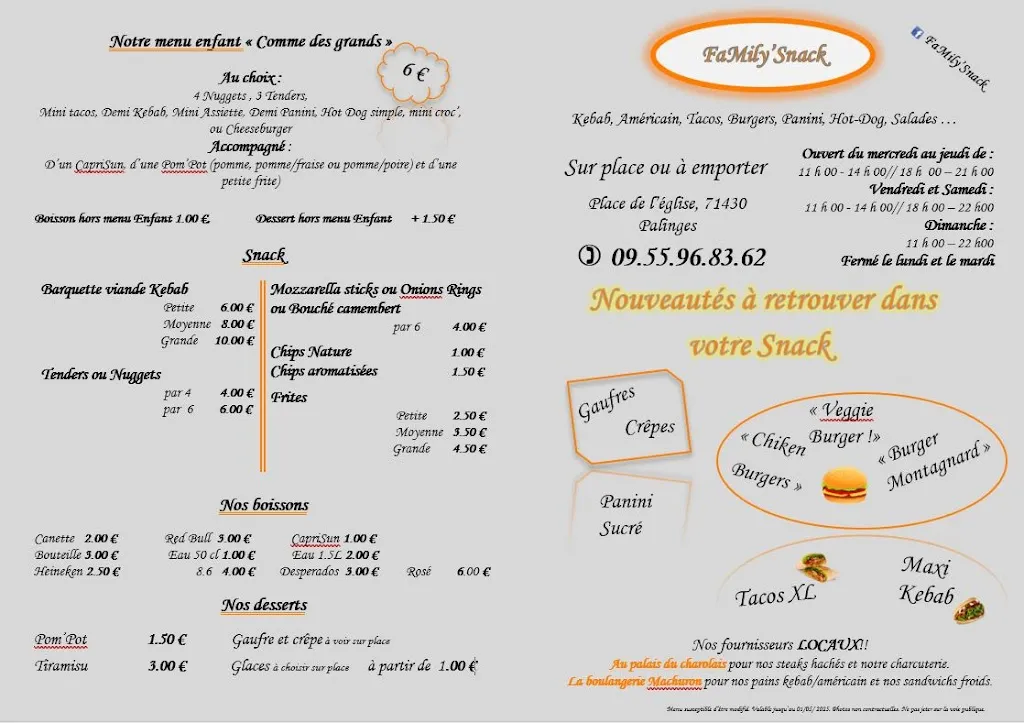 Notre menu enfant « Comme des grands »
6 €
Au choix :
4 Nuggets , 3 Tenders,
Mini tacos, Demi Kebab, Mini Assiette, Demi Panini, Hot Dog simple, mini croc',
ou Cheeseburger
Accompagné :
D'un CapriSun, d'une Pom'Pot (pomme, pomme/fraise ou pomme/poire) et d'une
petite frite)
Boisson hors menu Enfant 1.00 €, Dessert hors menu Enfant + 1.50 €
Snack
Barquette viande Kebab
Petite 6.00 €
Moyenne 8.00 €
Grande 10.00 €
Tenders ou Nuggets
par 4 4.00 €
par 6 6.00 €
Mozzarella sticks ou Onions Rings
ou Bouché camembert
par 6 4.00 €
Chips Nature 1.00 €
Chips aromatisées 1.50 €
Frites
Petite 2.50 €
Moyenne 3.50 €
Grande 4.50 €
Nos boissons
Canette 2.00 € Red Bull 3.00 € CapriSun 1.00 €
Bouteille 3.00 € Eau 50 cl 1.00 € Eau 1.5L 2.00 €
Heineken 2.50 € 8.6 4.00 € Desperados 3.00 € Rosé 6.00 €
Nos desserts
Pom'Pot 1.50 € Gaufre et crêpe à voir sur place
Tiramisu 3.00 € Glaces à choisir sur place à partir de 1.00 €
FaMily'Snack
FaMily'Snack
Kebab, Américain, Tacos, Burgers, Panini, Hot-Dog, Salades …
Sur place ou à emporter
Place de l'église, 71430
Palinges
✆ 09.55.96.83.62
Ouvert du mercredi au jeudi de :
11 h 00 - 14 h 00// 18 h 00 – 21 h 00
Vendredi et Samedi :
11 h 00 - 14 h 00// 18 h 00 – 22 h00
Dimanche :
11 h 00 – 22 h00
Fermé le lundi et le mardi
Nouveautés à retrouver dans
votre Snack
Gaufres
Crêpes
Panini
Sucré
« Veggie
Burger !»
« Chiken
Burgers »
« Burger
Montagnard »
Tacos XL
Maxi
Kebab
Nos fournisseurs LOCAUX!!
Au palais du charolais pour nos steaks hachés et notre charcuterie.
La boulangerie Machuron pour nos pains kebab/américain et nos sandwichs froids.
Menu susceptible d'être modifié. Valable jusqu'au 01/05/ 2025. Photos non contractuelles. Ne pas jeter sur la voie publique.